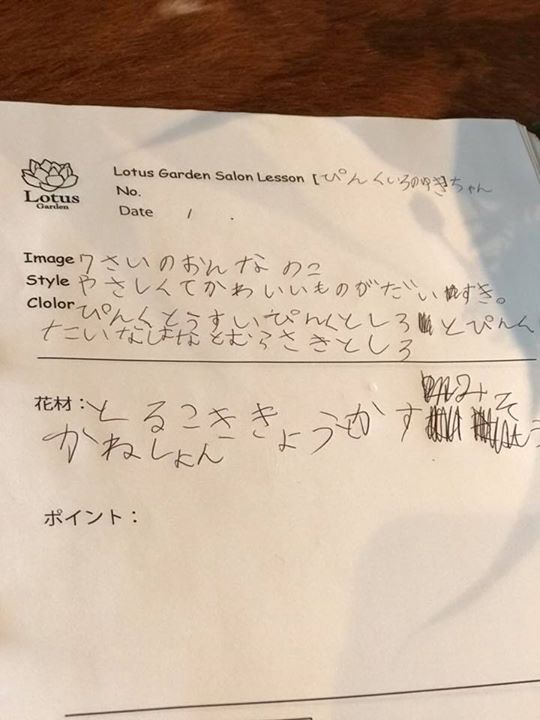 Lotus
Garden
Lotus Garden Salon Lesson [ぴんくいろのゆきちゃん
No.
Date / .
Image 7さいのおんなのこ
Style やさしくてかわいいものがだいすき。
Clolor ぴんくとうすいぴんくとしろとぴんく
たいなはなとむらさきとしろ
花材：とるこききょうとかすみそう
かねしょん
ポイント：